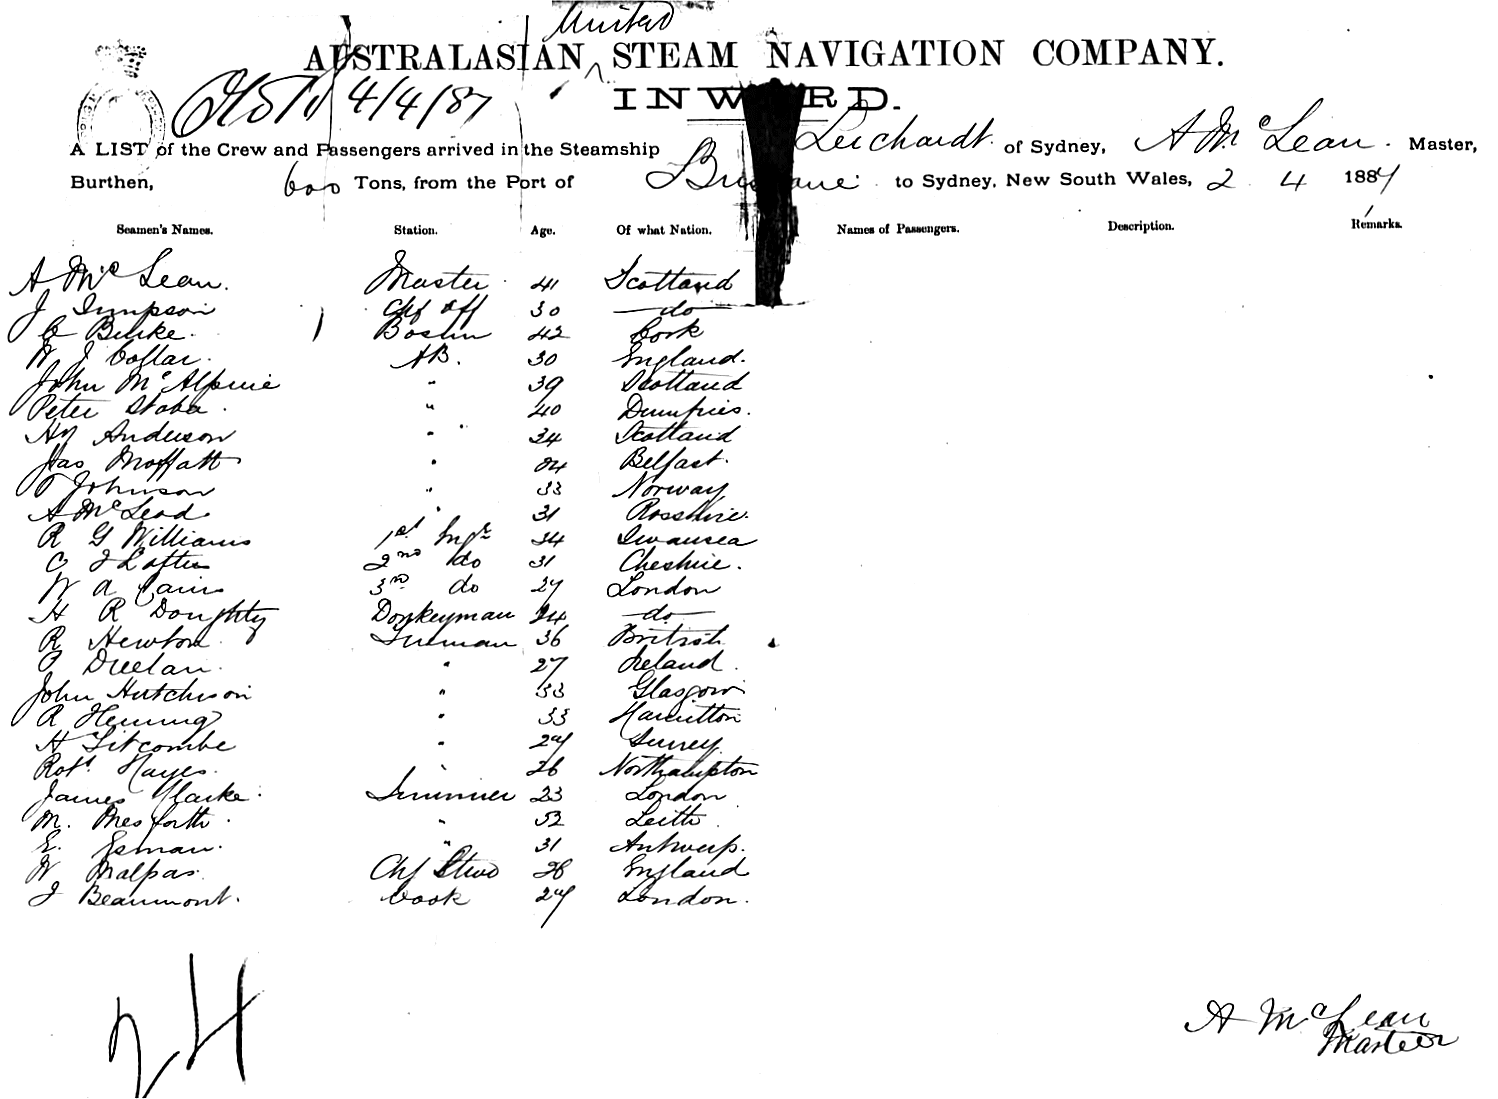 United
AUSTRALASIAN ^ STEAM NAVIGATION COMPANY.
4/4/87
INWARD.
A LIST of the Crew and Passengers arrived in the Steamship Leichardt of Sydney, A McLean. Master,
Burthen, 600 Tons, from the Port of Brisbane to Sydney, New South Wales, 2 4 1887
Seamen's Names. Station. Age. Of what Nation. Names of Passengers. Description. Remarks.
A McLean. Master 41 Scotland
J Simpson Chf Off 30 do
C Burke. Bosun 42 Cork
W J Collar. AB. 30 England.
John McAlpine " 39 Scotland
Peter " 40 Dumfries.
Hy Anderson " 34 Scotland
Jas Moffatt " Belfast.
Johnson " 33 Norway
A McLeod " 31 Rosshire.
R G Williams 1st Engr 34 Swansea
C J Loftus 2nd do 31 Cheshire.
W A Cairns 3rd do 27 London
H R Doughty Donkeyman 24 do
R Newton Fireman 36 British
P " 27 Ireland.
John Hutchison " 33 Glasgow
R Fleming " 33 Hamilton
H Titcombe " 27 Surrey
Robt. Hayes. " 26 Northampton
James Clarke. Trimmer 23 London
M. Mesforth. " 52 Leith.
E. " 31 Antwerp.
W Malpas. Chf Stwd 28 England
J Beaumont. Cook 27 London.
24
A McLean
Master